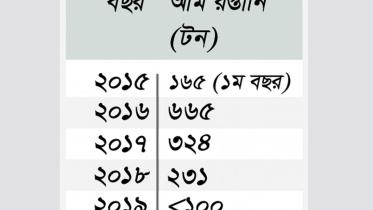 বছর আম রপ্তানি
(টন)
২০১৫ ১৬৫ (১ম বছর)
২০১৬ ৬৬৫
২০১৭ ৩২৪
২০১৮ ২৩১
২০১৯ <১০০